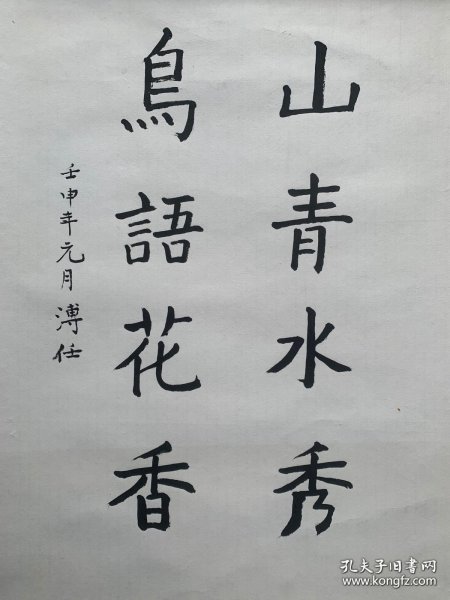 山青水秀
鳥語花香
壬申年元月 溥任
孔夫子旧书网
www.kongfz.com